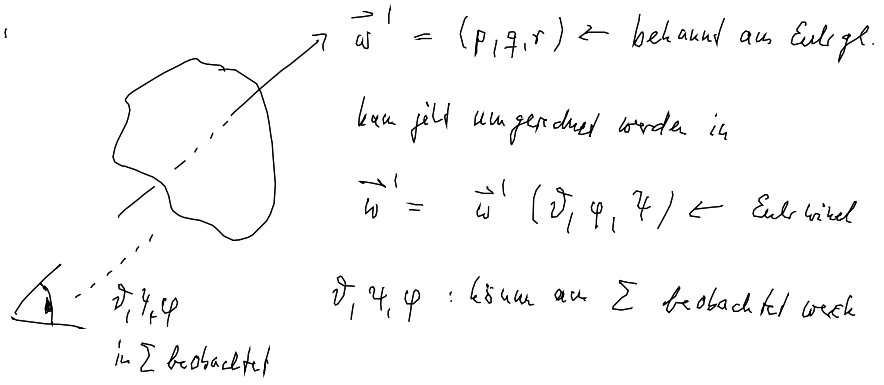 ω⃗' = (p, q, r) ← bekannt aus Eulergl.
kann jetzt umgerechnet werden in
ω⃗' = ω⃗' (ϑ, φ, ψ) ← Eulerwinkel
ϑ, ψ, φ : können aus Σ beobachtet werden
ϑ, ψ, φ
in Σ beobachtet